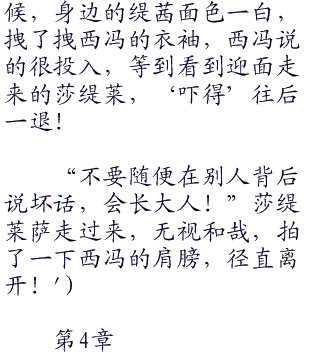 候，身边的缇茜面色一白，
拽了拽西冯的衣袖，西冯说
的很投入，等到看到迎面走
来的莎缇莱，‘吓得’往后
一退！
“不要随便在别人背后
说坏话，会长大人！”莎缇
莱萨走过来，无视和哉，拍
了一下西冯的肩膀，径直离
开！′）
第4章